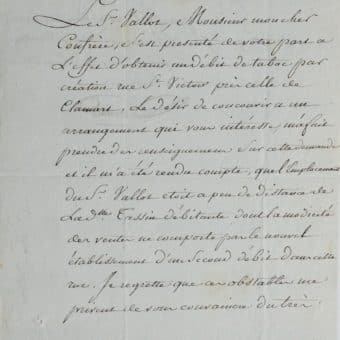 Le Sr. Vallot, Monsieur mon cher
Confrère, s'est presenté de votre part a
l'effet d'obtenir un débit de tabac par
création rue St. Victor près celle de
Clamart. Le désir de concourir a un
arrangement qui vous intéresse, m'a fait
prendre des renseignemens sur cette demande
et il m'a été rendu compte, que l'Emplacement
du Sr. Vallot etoit a peu de distance de
La dlle Tessin débitante dont la modicité
des ventes ne comporte pas le nouvel
établissement d'un second débit dans cette
rue. Je regrette que ces obstables me
privent de vous convaincre du très